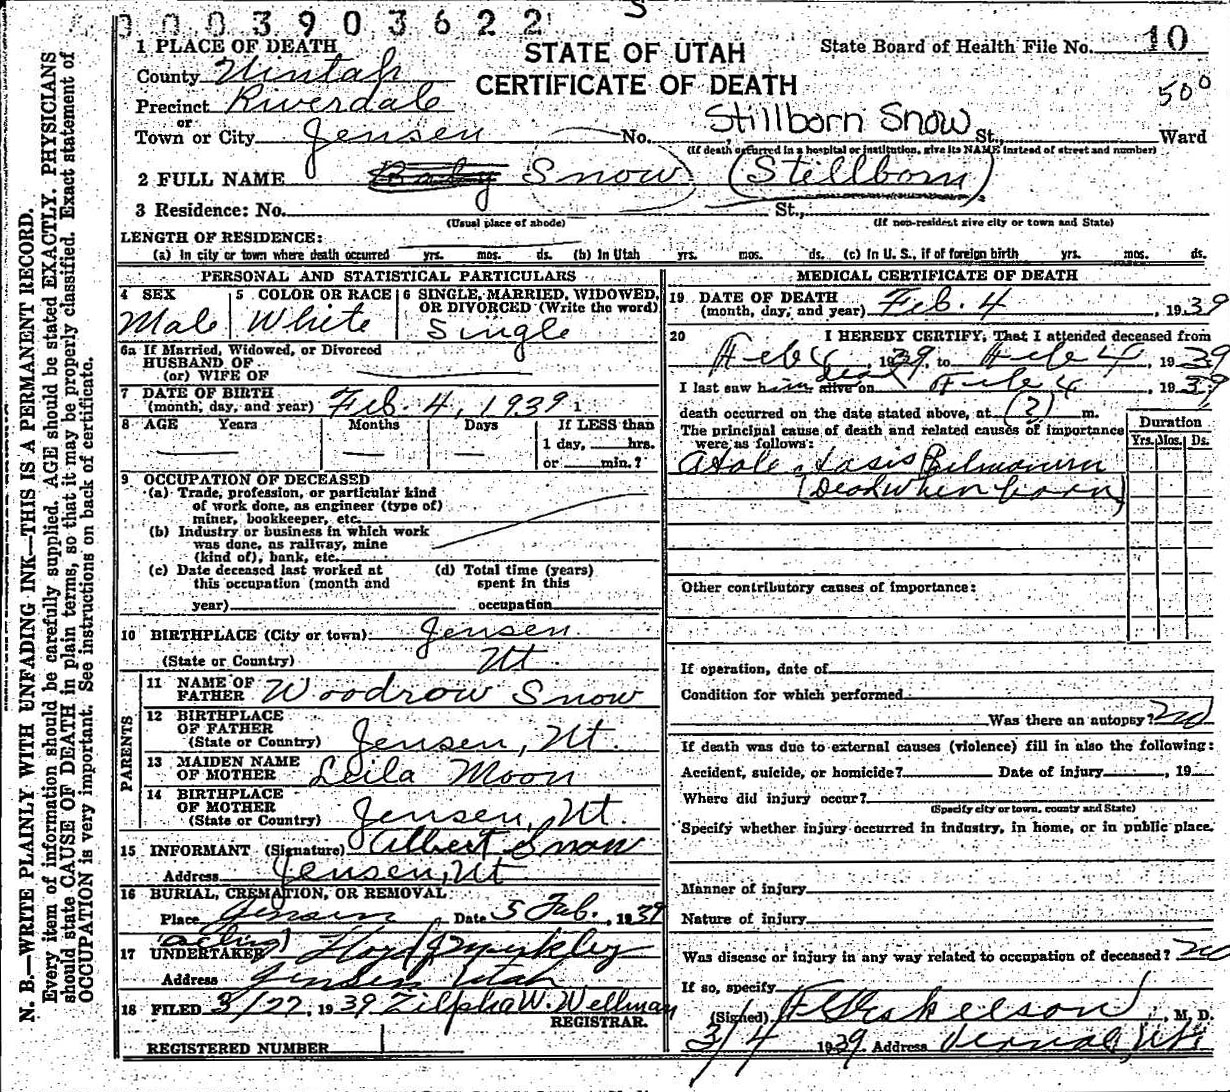 0003903622
S
1 PLACE OF DEATH
STATE OF UTAH
State Board of Health File No. 10
County Uintah
CERTIFICATE OF DEATH
500
Precinct Riverdale
or
Town or City Jensen No. Stillborn Snow St., Ward
(If death occurred in a hospital or institution, give its NAME instead of street and number)
2 FULL NAME Baby Snow (Stillborn)
3 Residence: No. St.,
(Usual place of abode) (If non-resident give city or town and State)
LENGTH OF RESIDENCE:
(a) In city or town where death occurred yrs. mos. ds. (b) In Utah yrs. mos. ds. (c) In U. S., if of foreign birth yrs. mos. ds.
PERSONAL AND STATISTICAL PARTICULARS
4 SEX 5 COLOR OR RACE 6 SINGLE, MARRIED, WIDOWED,
OR DIVORCED (Write the word)
Male White Single
6a If Married, Widowed, or Divorced
HUSBAND OF
(or) WIFE OF
7 DATE OF BIRTH
(month, day, and year) Feb. 4, 1939 1
8 AGE Years Months Days If LESS than
1 day, hrs.
or min.?
9 OCCUPATION OF DECEASED
(a) Trade, profession, or particular kind
of work done, as engineer (type of)
miner, bookkeeper, etc.
(b) Industry or business in which work
was done, as railway, mine
(kind of), bank, etc.
(c) Date deceased last worked at (d) Total time (years)
this occupation (month and spent in this
year) occupation
10 BIRTHPLACE (City or town) Jensen
(State or Country) Ut
PARENTS
11 NAME OF
FATHER Woodrow Snow
12 BIRTHPLACE
OF FATHER
(State or Country) Jensen, Ut.
13 MAIDEN NAME
OF MOTHER Leila Moon
14 BIRTHPLACE
OF MOTHER
(State or Country) Jensen, Ut.
15 INFORMANT (Signature) Albert Snow
Address Jensen, Ut
16 BURIAL, CREMATION, OR REMOVAL
Place Jensen Date 5 Feb., 1939
(acting)
17 UNDERTAKER Floyd J Murkley
Address Jensen Utah
18 FILED 3/27, 1939 Zilpha W. Wellman
REGISTRAR.
REGISTERED NUMBER
MEDICAL CERTIFICATE OF DEATH
19 DATE OF DEATH
(month, day, and year) Feb. 4, 1939
20 I HEREBY CERTIFY, That I attended deceased from
Feb 4, 1939, to Feb 4, 1939
dead
I last saw him alive on Feb 4, 1939
death occurred on the date stated above, at (?) m.
The principal cause of death and related causes of importance
were as follows:
Duration
Yrs. Mos. Ds.
Atalectasis Pulmonum
(Dead when born)
Other contributory causes of importance:
If operation, date of
Condition for which performed
Was there an autopsy? no
If death was due to external causes (violence) fill in also the following:
Accident, suicide, or homicide? Date of injury, 19
Where did injury occur?
(Specify city or town, county and State)
Specify whether injury occurred in industry, in home, or in public place.
Manner of injury
Nature of injury
Was disease or injury in any way related to occupation of deceased? no
If so, specify
(Signed) Eskelson, M. D.
3/4 1939 Address Vernal, Ut.
N. B.—WRITE PLAINLY WITH UNFADING INK—THIS IS A PERMANENT RECORD.
Every item of information should be carefully supplied. AGE should be stated EXACTLY. PHYSICIANS
should state CAUSE OF DEATH in plain terms, so that it may be properly classified. Exact statement of
OCCUPATION is very important. See instructions on back of certificate.